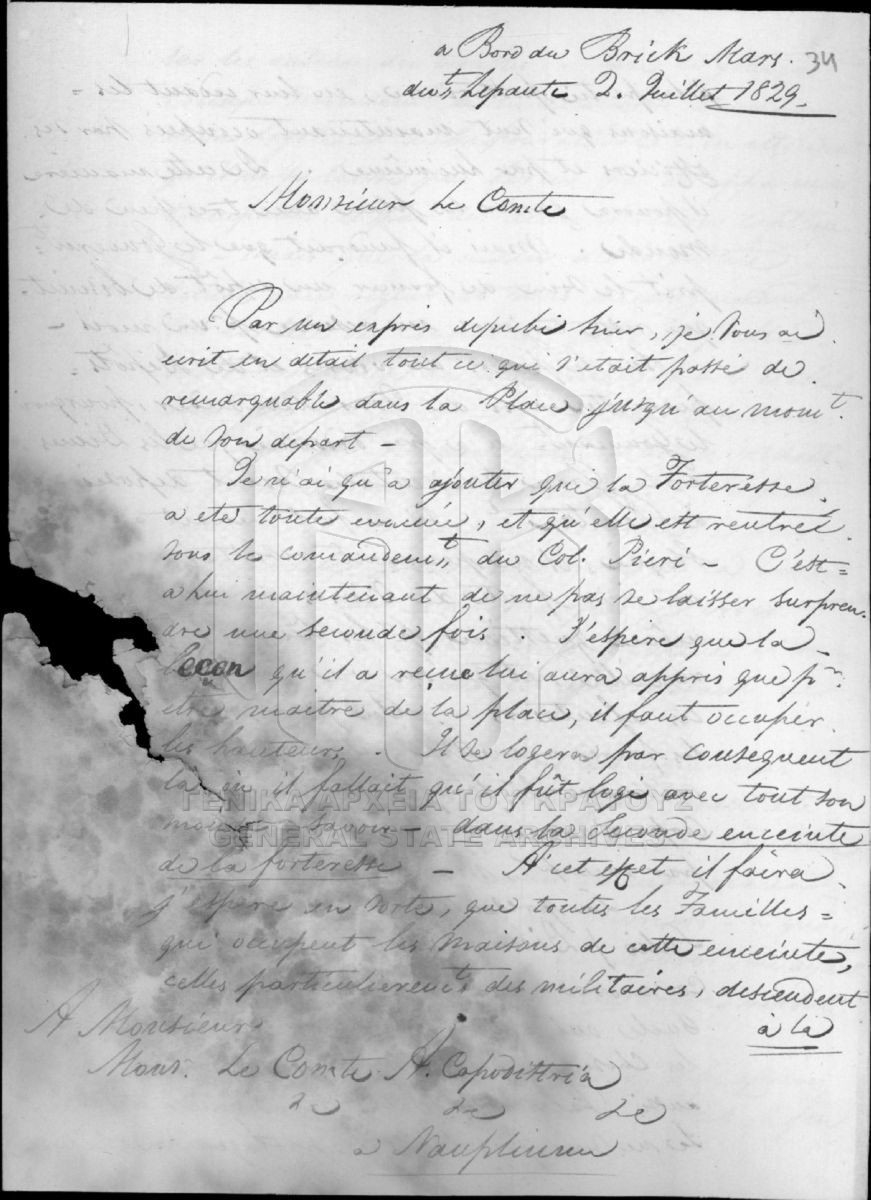 a Bord du Brick Mars.
34
devt Lepante 2. Juillet 1829.
Monsieur Le Comte
Par un exprès depuis hier, je vous ai
ecrit en detail tout ce qui s'etait passé de
remarquable dans la Place jusqu'au momt.
de son depart -
Je n'ai qu'a ajouter que la Forteresse
a eté toute evacuée, et qu'elle est rentrée
sous le comandemt. du Col. Pieri - C'est=
a lui maintenant de ne pas se laisser surpren-
dre une seconde fois. J'espere que la
lecon qu'il a recue lui aura appris que pr.
etre maitre de la place, il faut occuper
les hauteurs. Il se logera par consequent
là où il fallait qu'il fût logé avec tout son
monde savoir - dans la seconde enceinte
de la forteresse - A cet effet il faira
j'espere en sorte, que toutes les Familles=
qui occupent les maisons de cette enceinte,
celles particulieremt. des militaires, descendent
à la
A Monsieur
Monsr. Le Comte A. Capodistria
&c &c &c
a Nauplie
ΓΕΝΙΚΑ ΑΡΧΕΙΑ ΤΟΥ ΚΡΑΤΟΥΣ
GENERAL STATE ARCHIVES